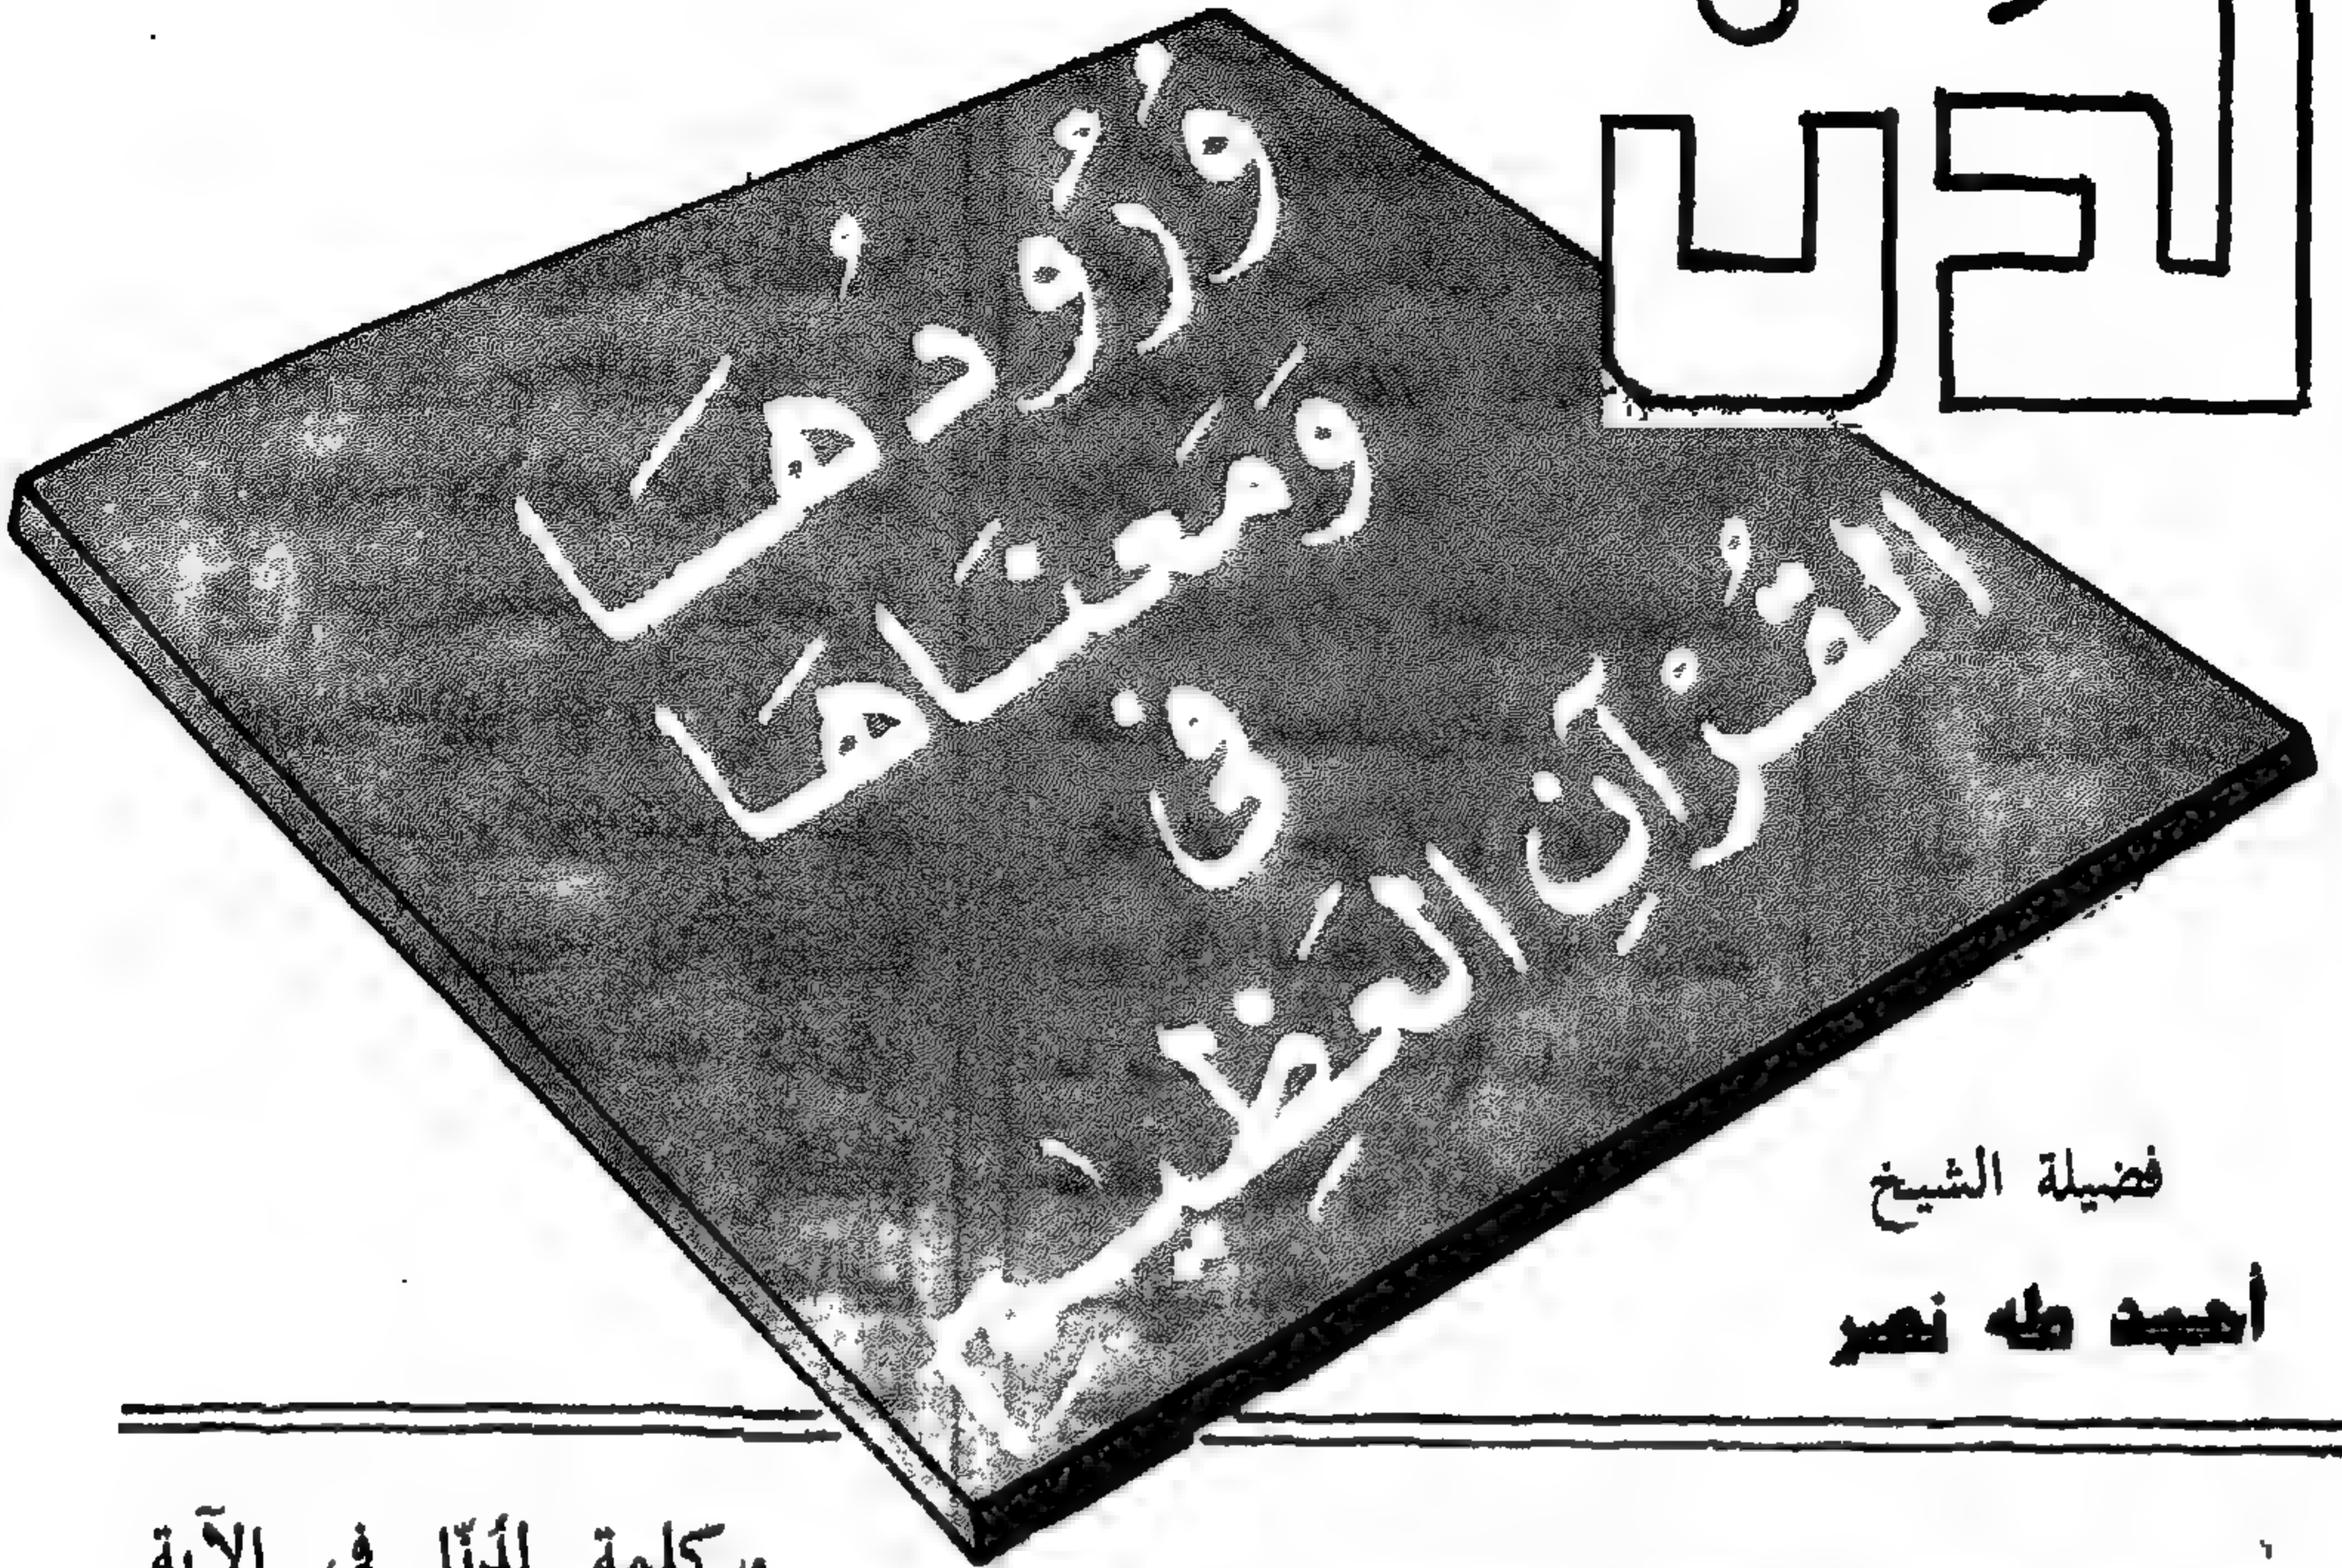 لدن
وُرُودُهَا
وَمَعنَاهَا
فى
القُرْآنِ العَظِيم
فضيلة الشيخ
أحمد طه نصر
وكلمة لَدُنَّا فى الآية